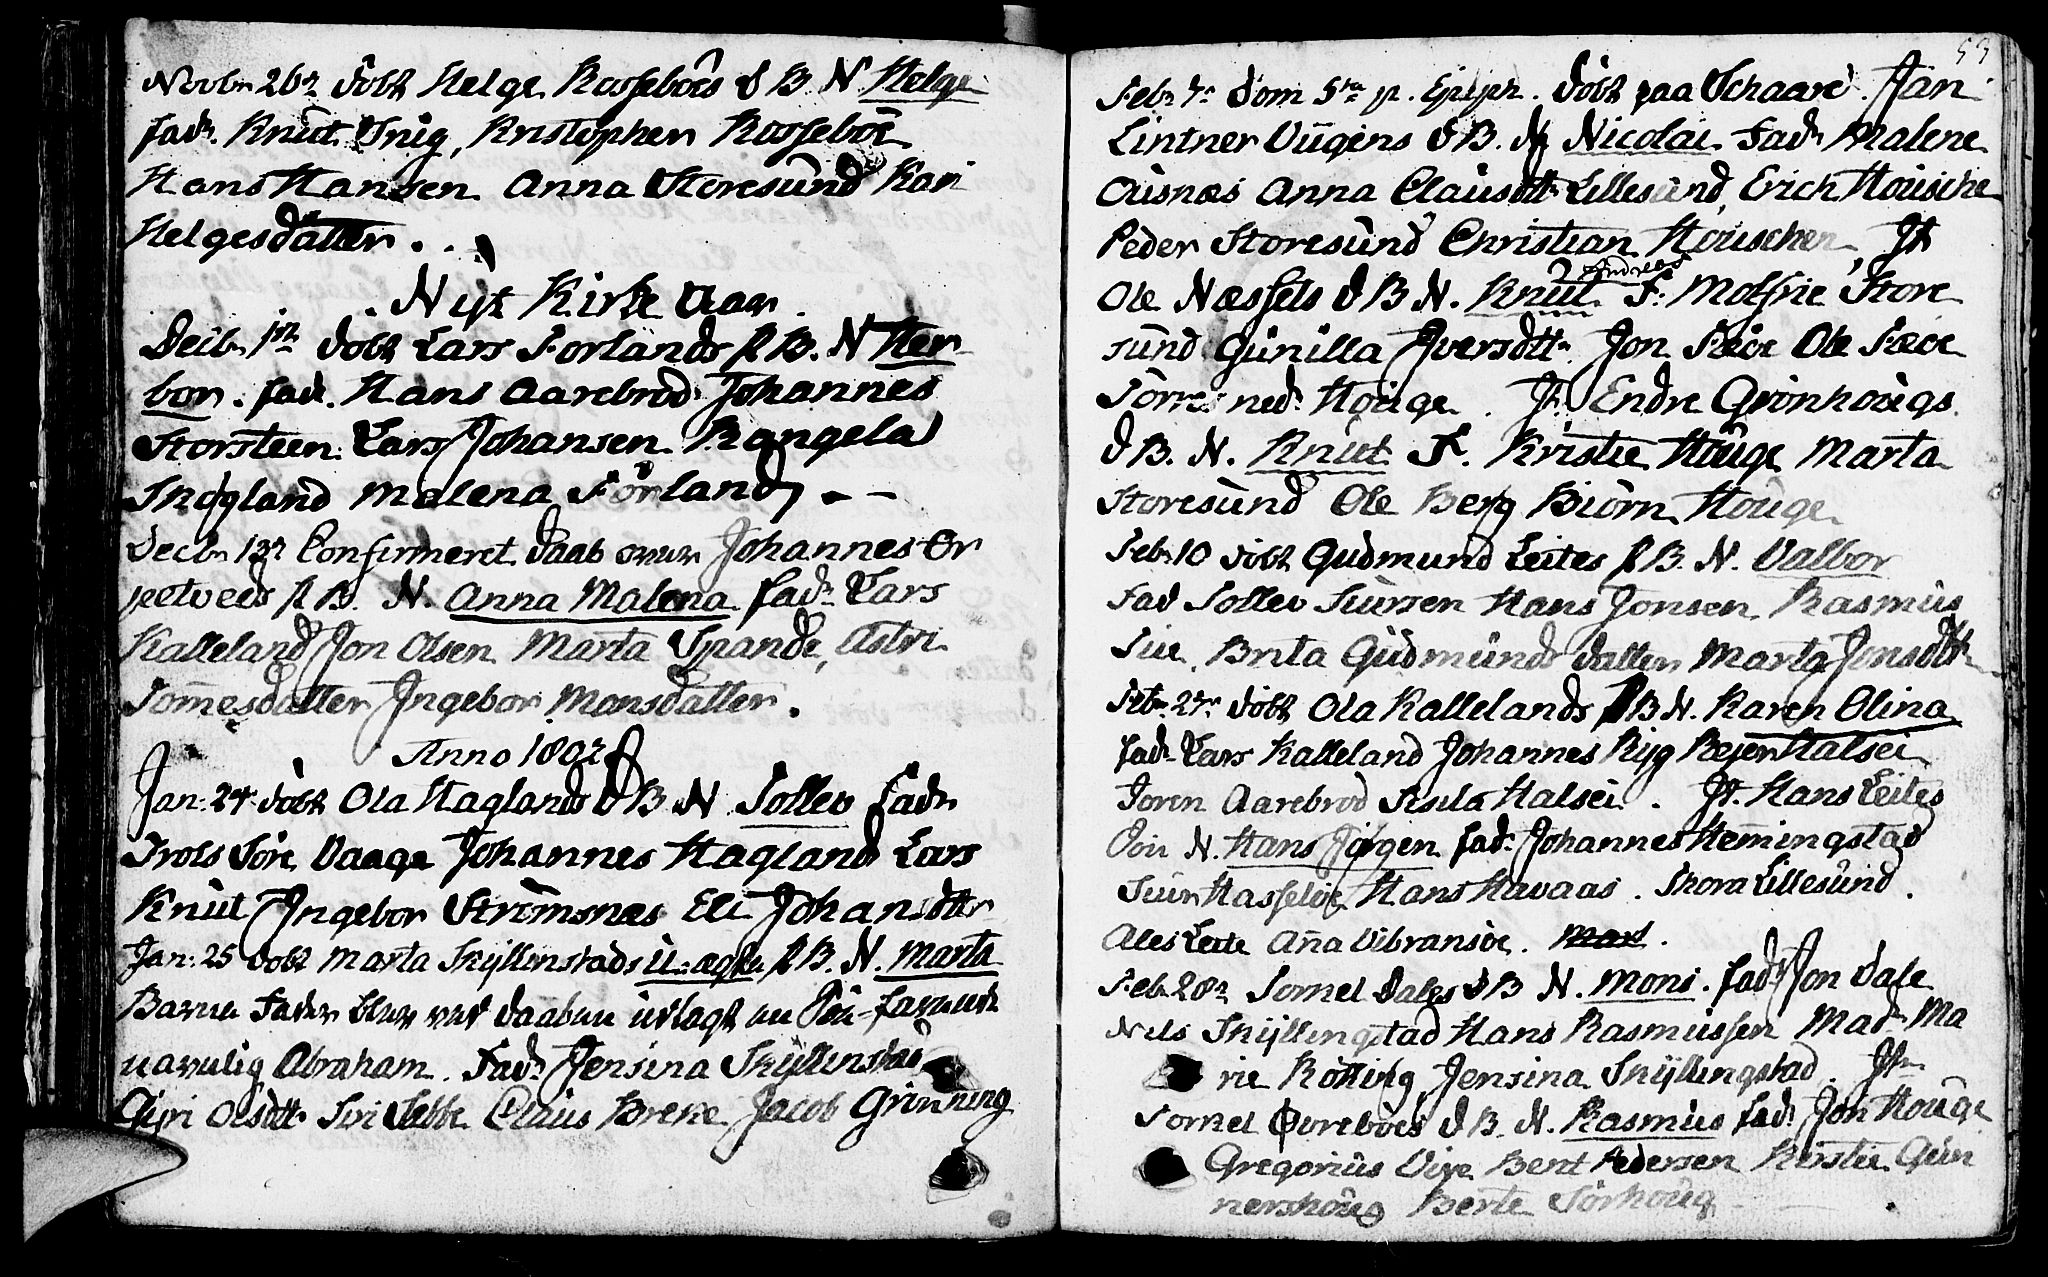 Novbr 26de Döbt Helge Rosseböes D B N Helge
fad. Knut Snig, Kristopher Rosseböe
Hans Hansen Anna Storesund Kari
Helgesdatter.
Nyt Kirke Aar
Decb. 1ste döbt Lars Förlands P B. N Her
bor. fad. Hans Aarebrod Johannes
Storsteen Lars Johansen Rangela
Skogland Malena Förland
Decbr 13de Confirmeret daab over Johannes Ör
petveds P B. N. Anna Malena fad. Lars
Kalleland Jon Olsen Marta Spande, Astri
Tom̄esdatter Ingebor Monsdatter.
Anno 1802
Jan: 24de döbt Ola Haglands D B N Sollev Fadr
Trols Söre Vaage Johannes Hagland Lars
Knut Ingebor Strömsnæs Eli Johansdttr
Jan: 25 döbt Marta Skyllenstads U-ægte P B. N. Marta
Barne Fader blev ved daaben udlagt en
Abraham. Fadr Jensina Skyllenstad
Gyri Olsdttr Siri Sebbe Claus Brekke Jacob Grinning
53
Feb. 7de Dom 5ta p. Epiph. döbt paa Schaare Jan
Lintner Bügens D B. N Nicolai Fadr Malene
Ousnæs Anna Clausdttr Lillesund, Erich Houschen
Peder Storesund Christian Houschen, It
2 Andreas
Ole Næssets D B N. Knut F: Molfrie Store
sund Gunilla Iversdttr Jon Fæöe Ole Fæöe
Törres ned. Houge. It. Endre Grönhougs
D B. N. Knut F. Kristie Houge Marta
Storesund Ole Berg Biörn Houge
Feb. 10 döbt Gudmund Leites P B. N. Valbor
Fad Sollev Siursen Hans Jonsen Rasmus
Siu. Brita Gudmunds datter Marta Jonsdttr
Feb. 27de döbt Ola Kallelands P B N. Karen Olina
fad. Lars Kalleland Johannes Ryg Reier Halsei
Toren Aarebrod Sisila Halsei. It. Hans Leites
N. Hans Jörgen fad. Johannes Hem̄ingstad
Siur Hasseløe Hans Havaas. Thora Lillesund.
Ales Leite An̄a Vibransöe. Mart.
Feb. 28de Tomel Dales D B N. Moni. fad. Jon Dale
Nils Skyllengstad Hans Rasmussen Mad. Ma
rie Rötting, Jensina Skyllengstad It
Tomel Øvreboes D B. N. Rasmus fad. Jon Houge
Gregorius Vixe Bent Pedersen Kirstie Gun
nershoug Berte Sörhoug